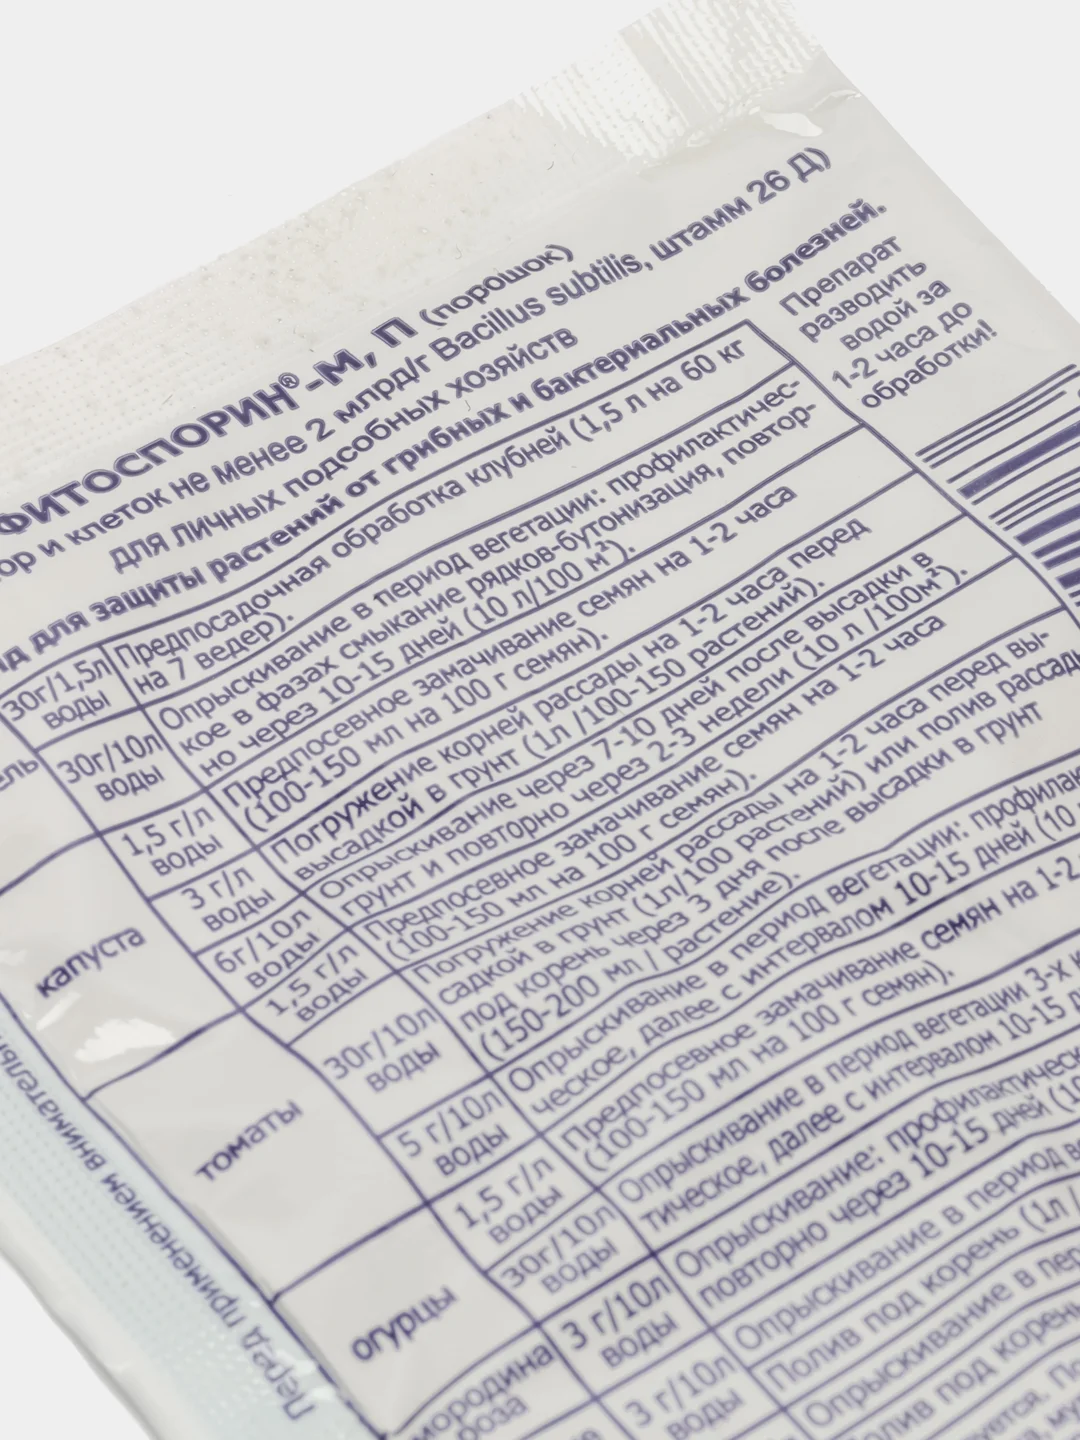 ФИТОСПОРИН®-М, П (порошок)
и клеток не менее 2 млрд/г Bacillus subtilis, штамм 26 Д)
для личных подсобных хозяйств
для защиты растений от грибных и бактериальных болезней.
Препарат
разводить
водой за
1-2 часа до
обработки!
30г/1,5л
воды
Предпосадочная обработка клубней (1,5 л на 60 кг
на 7 ведер).
30г/10л
воды
Опрыскивание в период вегетации: профилактичес-
кое в фазах смыкание рядков-бутонизация, повтор-
но через 10-15 дней (10 л/100 м²).
капуста
1,5 г/л
воды
Предпосевное замачивание семян на 1-2 часа
(100-150 мл на 100 г семян).
3 г/л
воды
Погружение корней рассады на 1-2 часа перед
высадкой в грунт (1л /100-150 растений).
6г/10л
воды
Опрыскивание через 7-10 дней после высадки в
грунт и повторно через 2-3 недели (10 л /100м²).
томаты
1,5 г/л
воды
Предпосевное замачивание семян на 1-2 часа
(100-150 мл на 100 г семян).
30г/10л
воды
Погружение корней рассады на 1-2 часа перед вы-
садкой в грунт (1л/100 растений) или полив рассады
под корень через 3 дня после высадки в грунт
(150-200 мл / растение).
5 г/10л
воды
Опрыскивание в период вегетации:
ческое, далее с интервалом 10-15 дней (10
огурцы
1,5 г/л
воды
Предпосевное замачивание семян на 1-2
(100-150 мл на 100 г семян).
30г/10л
воды
Опрыскивание в период вегетации 3-х
тическое, далее с интервалом 10-15
3 г/10л
воды
Опрыскивание:
повторно через 10-15 дней
3 г/10л
воды
Опрыскивание в период
Полив под корень (1л /
Опрыскивание в
под корень
Перед применением